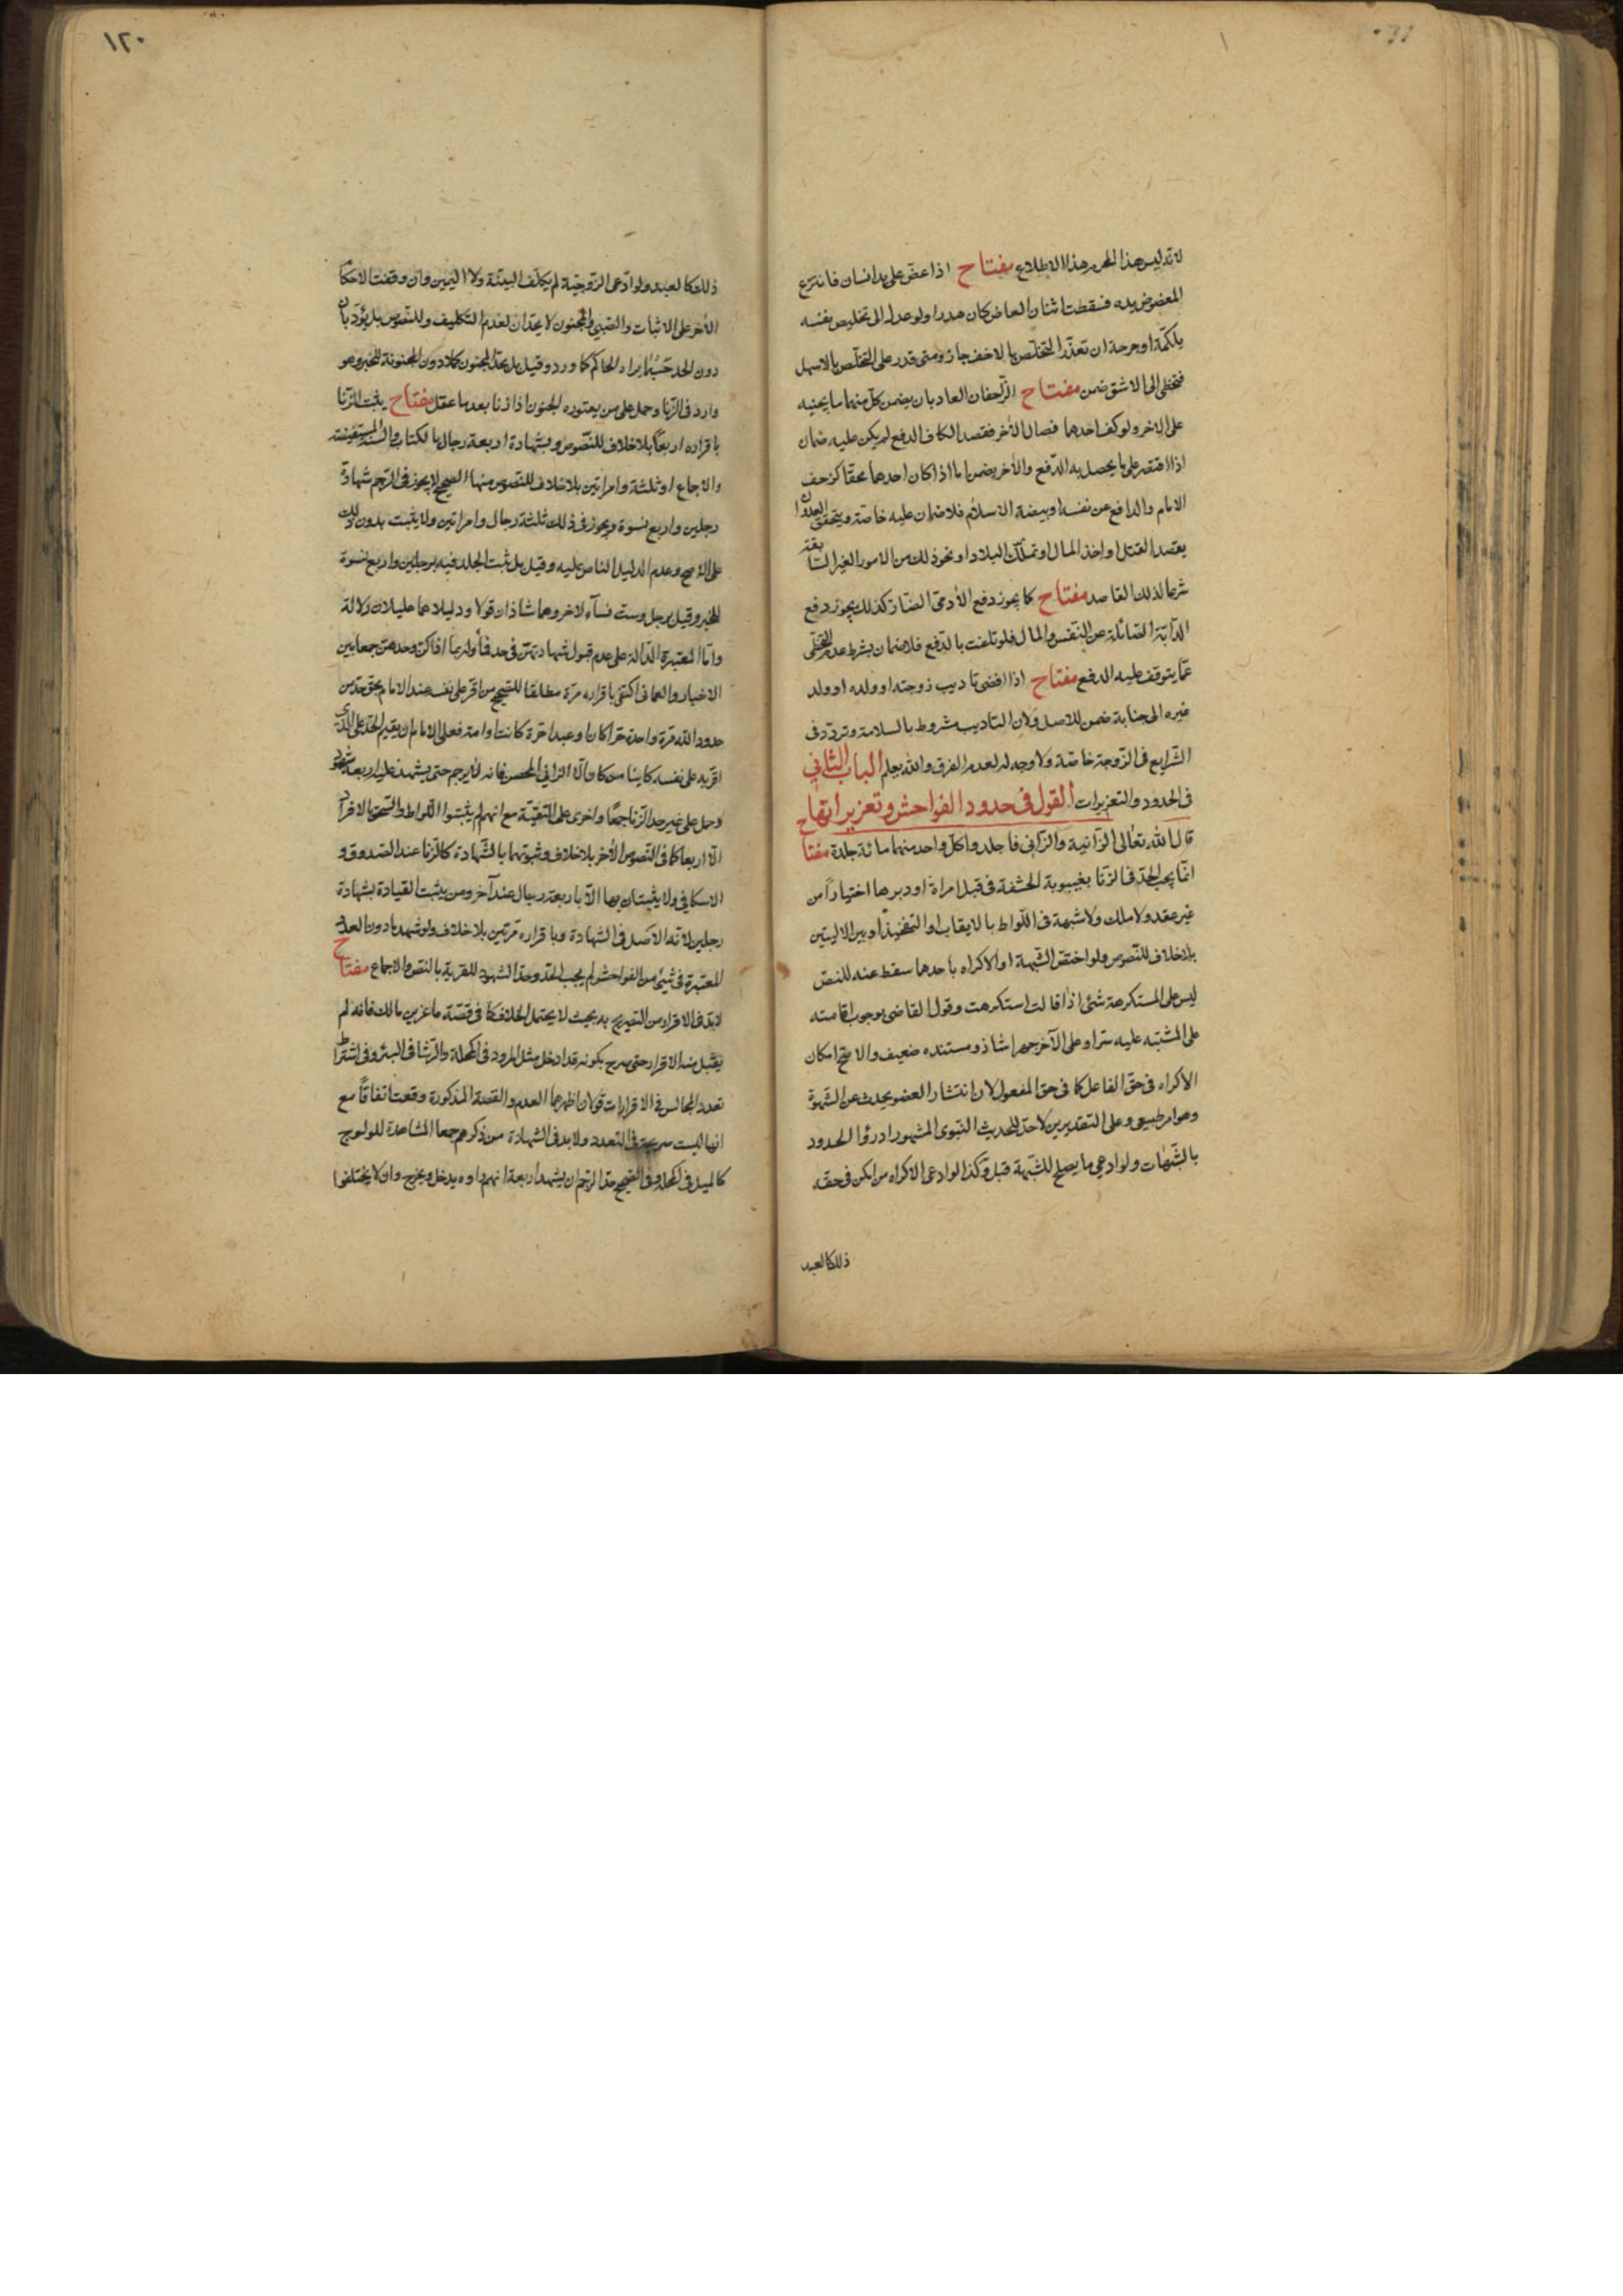 لانه ليس هذا المحرم هذا الاطلاع مفتاح اذا عض على يد انسان فانتزع
المعضوض يده فسقطت اسنان العاض كان هدرا ولو عدل الى تخليص نفسه
بلكمة او جرحة ان تعذر التخلص بالاخف جاز ومتى قدر على التخلص بالاسهل
فتخطى الى الاشق ضمن مفتاح الزاحفان العاديان يضمن كل منهما ما يجنيه
على الاخر ولو كف احدهما فصال الاخر فقصد الكاف الدفع لم يكن عليه ضمان
اذا اقتصر على ما يحصل به الدفع والاخر يضمن اما اذا كان احدهما محقا كزحف
الامام والدافع عن نفسه او بيضة الاسلام فلا ضمان عليه خاصة ويتحقق العدوان
بقصد القتل او اخذ المال او تملك البلاد او نحو ذلك من الامور الغير السابقة
شرعا لذلك القاصد مفتاح كما يجوز دفع الآدمي الضار كذلك يجوز دفع
الدابة الصائلة عن النفس والمال فلو تلفت بالدفع فلا ضمان بشرط عدم التخطى
عما يتوقف عليه الدفع مفتاح اذا افضى تاديب زوجته او ولده او ولد
غيره الى جناية ضمن للاصل ولان التاديب مشروط بالسلامة وتردد فى
الشرايع فى الزوجة خاصة ولا وجه له لعدم الفرق والله يعلم الباب الثاني
فى الحدود والتعزيرات القول فى حدود الفواحش وتعزيراتها
قال الله تعالى الزانية والزانى فاجلدوا كل واحد منهما مائة جلدة مفتاح
انما يجب الحد فى الزنا بغيبوبة الحشفة فى قبل امراة او دبرها اختيارا من
غير عقد ولا ملك ولا شبهة فى اللواط بالايقاب او التفخيذ او بين الاليتين
بلا خلاف للنصوص ولو اختص الشبهة او الاكراه باحدهما سقط عنه للنص
ليس على المستكرهة شئ اذا قالت استكرهت وقول القاضى بوجوب اقامته
على المشتبه عليه سرا وعلى الآخر جهرا شاذ ومستنده ضعيف والاصح امكان
الاكراه فى حق الفاعل كما فى حق المفعول لان انتشار العضو يحدث عن الشهوة
وهو امر طبيعى وعلى التقديرين لا حد للحديث النبوى المشهور ادرؤا الحدود
بالشبهات ولو ادعى ما يصلح للشبهة قبل وكذا لو ادعى الاكراه من امكن فى حقه
ذلك كالعبد
١٢٠
ذلك كالعبد ولو ادعى الزوجية لم يكلف البينة ولا اليمين وان وقفت الاحكام
الأخر على الاثبات والصبي والمجنون لا يحدان لعدم التكليف وللنصوص بل يؤدبان
دون الحد حسبما يراه الحاكم كما ورد وقيل بل يحد المجنون كملا دون المجنونة للخبر وهو
وارد فى الزنا وحمل على من يعتوره الجنون اذا زنا بعد ما عقل مفتاح يثبت الزنا
باقراره اربعا بلا خلاف للنصوص وبشهادة اربعة رجال بالكتاب والسنة المستفيضة
والاجماع او ثلثة وامراتين بلا خلاف للنصوص منها الصحيح لا يجوز فى الرجم شهادة
رجلين واربع نسوة ويجوز فى ذلك ثلثة رجال وامراتين ولا يثبت بدون ذلك
على الاصح وعدم الدليل الناص عليه وقيل بل ثبت الجلد فيه برجلين واربع نسوة
للخبر وقيل برجل وست نساء لاخر وهما شاذان قولا ودليلا هما عليلان دلالة
واما المعتبرة الدالة على عدم قبول شهادتهن فى حد فمأولة بما اذا كن وحدهن جمعا بين
الاخبار والعمانى اكتفى باقراره مرة مطلقا للصحيح من اقر على نفسه عند الامام بحق حد من
حدود الله مرة واحدة حرا كان او عبدا حرة كانت او امة فعلى الامام ان يقيم الحد على الذى
اقر به على نفسه كاينا من كان الا الزاني المحصن فانه لا يرجم حتى يشهد عليه اربعة شهود
وحمل على غير حد الزنا جمعا واخرى على التقية مع انهم لم يثبتوا اللواط والسحق الا قرار
الا اربعا كما فى النصوص الأخر بلا خلاف وثبوتهما بالشهادة كالزنا عند الصدوق و
الاسكافي ولا يثبتان بها الا باربعة رجال عند آخر ومن يثبت القيادة بشهادة
رجلين لانه الاصل فى الشهادة وباقراره مرتين بلا خلاف ولو شهد ما دون العدد
المعتبرة فى شيئ من الفواحش لم يجب الحد وحد الشهود للفرية بالنص والاجماع مفتاح
لابد فى الاقرار من التصريح به بحيث لا يحتمل الخلاف كما فى قصة ماعز بن مالك فانه لم
يقبل منه الاقرار حتى صرح بكونه قد ادخل مثل المرود فى المكحلة والرشا فى البئر وفى اشتراط
تعدد المجالس فى الاقرارات قولان اظهرهما العدم والقصة المذكورة وقعت اتفاقا مع
انها ليست صريحة فى التعدد ولابد فى الشهادة من ذكرهم جمعا المشاهدة للولوج
كالميل فى المكحلة وفى الصحيح حد الرجم ان يشهد اربعة انهم راوه يدخل ويخرج وان لا يختلفوا